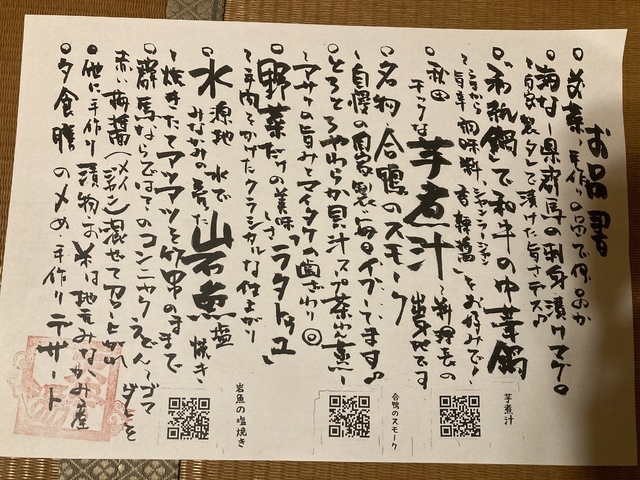 お品書
お菜〜手作りの品で何品か
海なし県群馬の刺身漬けマグロ
〜自家製タレで漬けた旨さデス♪
お紙鍋で和牛の中華鍋
〜うまから旨辛調味料「香辣醤」シャンラージャンをお好みで！
秋田チックな芋煮汁〜料理長の出身地です
名物合鴨のスモーク
〜自慢の自家製！毎日イブしてます♪
とろとろやわらか貝汁スープ茶わん蒸し
〜アサリの旨みとマイタケ歯ざわり◎
野菜だけの美味しさ「ラタトゥユ」
〜手内でかけたクラシカルな仕上がり
水源地みなかみの水で育った岩魚塩焼き
〜焼きたてアツアツを竹串のままで
群馬ならではのコンニャクうどん〜ゴマダレと
赤い梅醤（メイジャン）混ぜて召し上がれ
他に手作り漬物お米は地元みなかみ産
夕食膳の〆め、手作りデザート
芋煮汁
合鴨のスモーク
岩魚の塩焼き